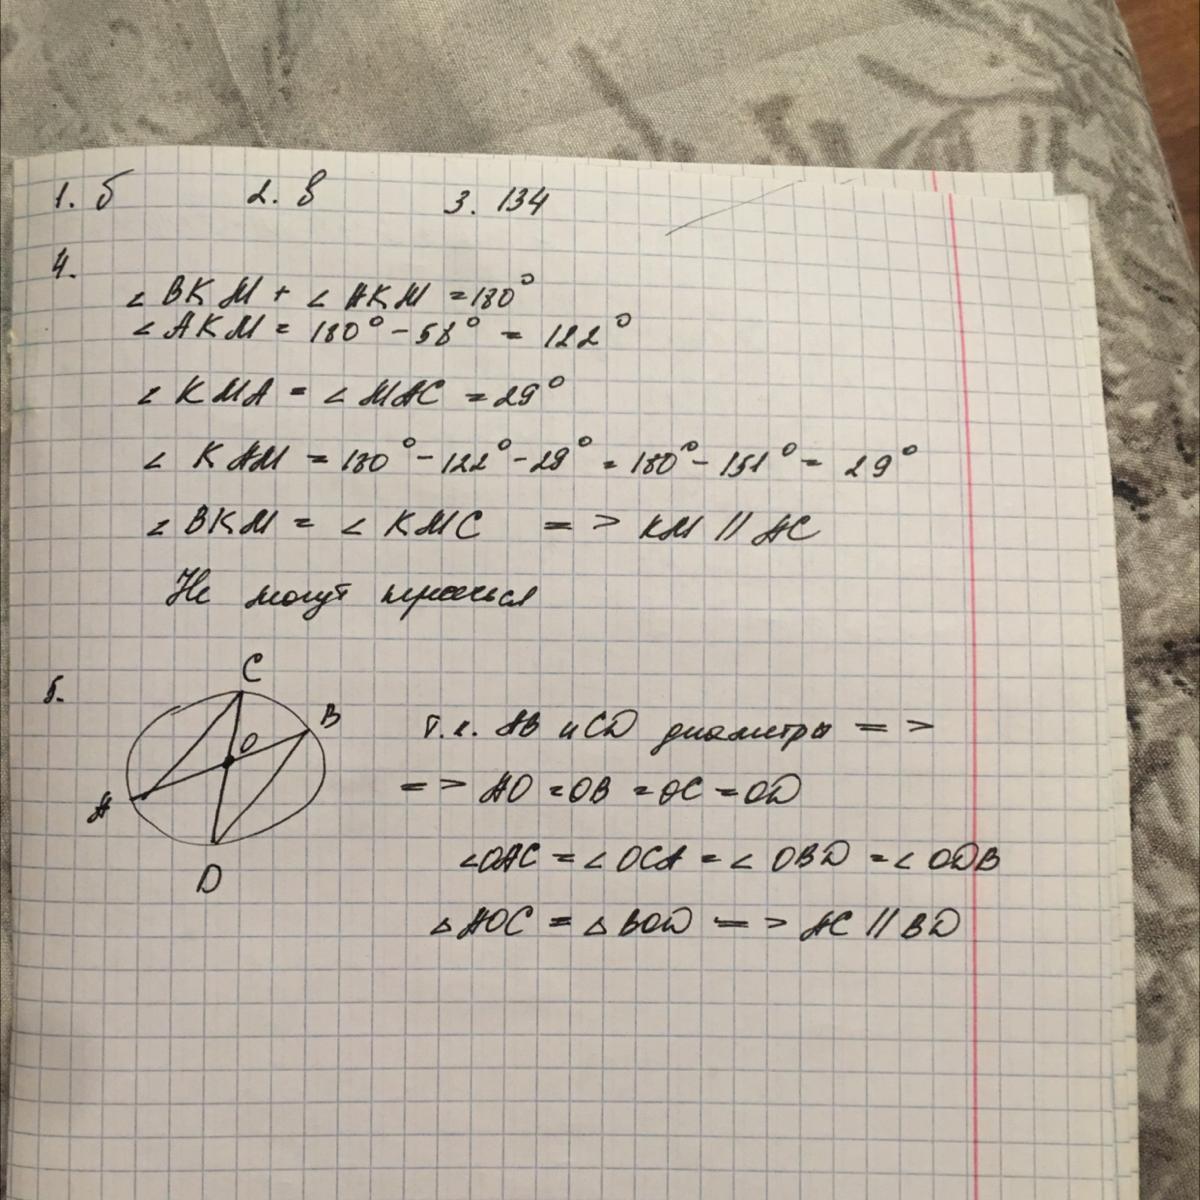 1. б 2. в 3. 134
4.
∠ BKM + ∠ AKM = 180°
∠ AKM = 180° - 58° = 122°
∠ KMA = ∠ MAC = 29°
∠ KAM = 180° - 122° - 29° = 180° - 151° = 29°
∠ BKM = ∠ KMC => KM // AC
Не могут
5.
C
B
O
A
D
т.к. AB и CD диаметры =>
=> AO = OB = OC = OD
∠OAC = ∠OCA = ∠OBD = ∠ODB
△AOC = △BOD => AC // BD